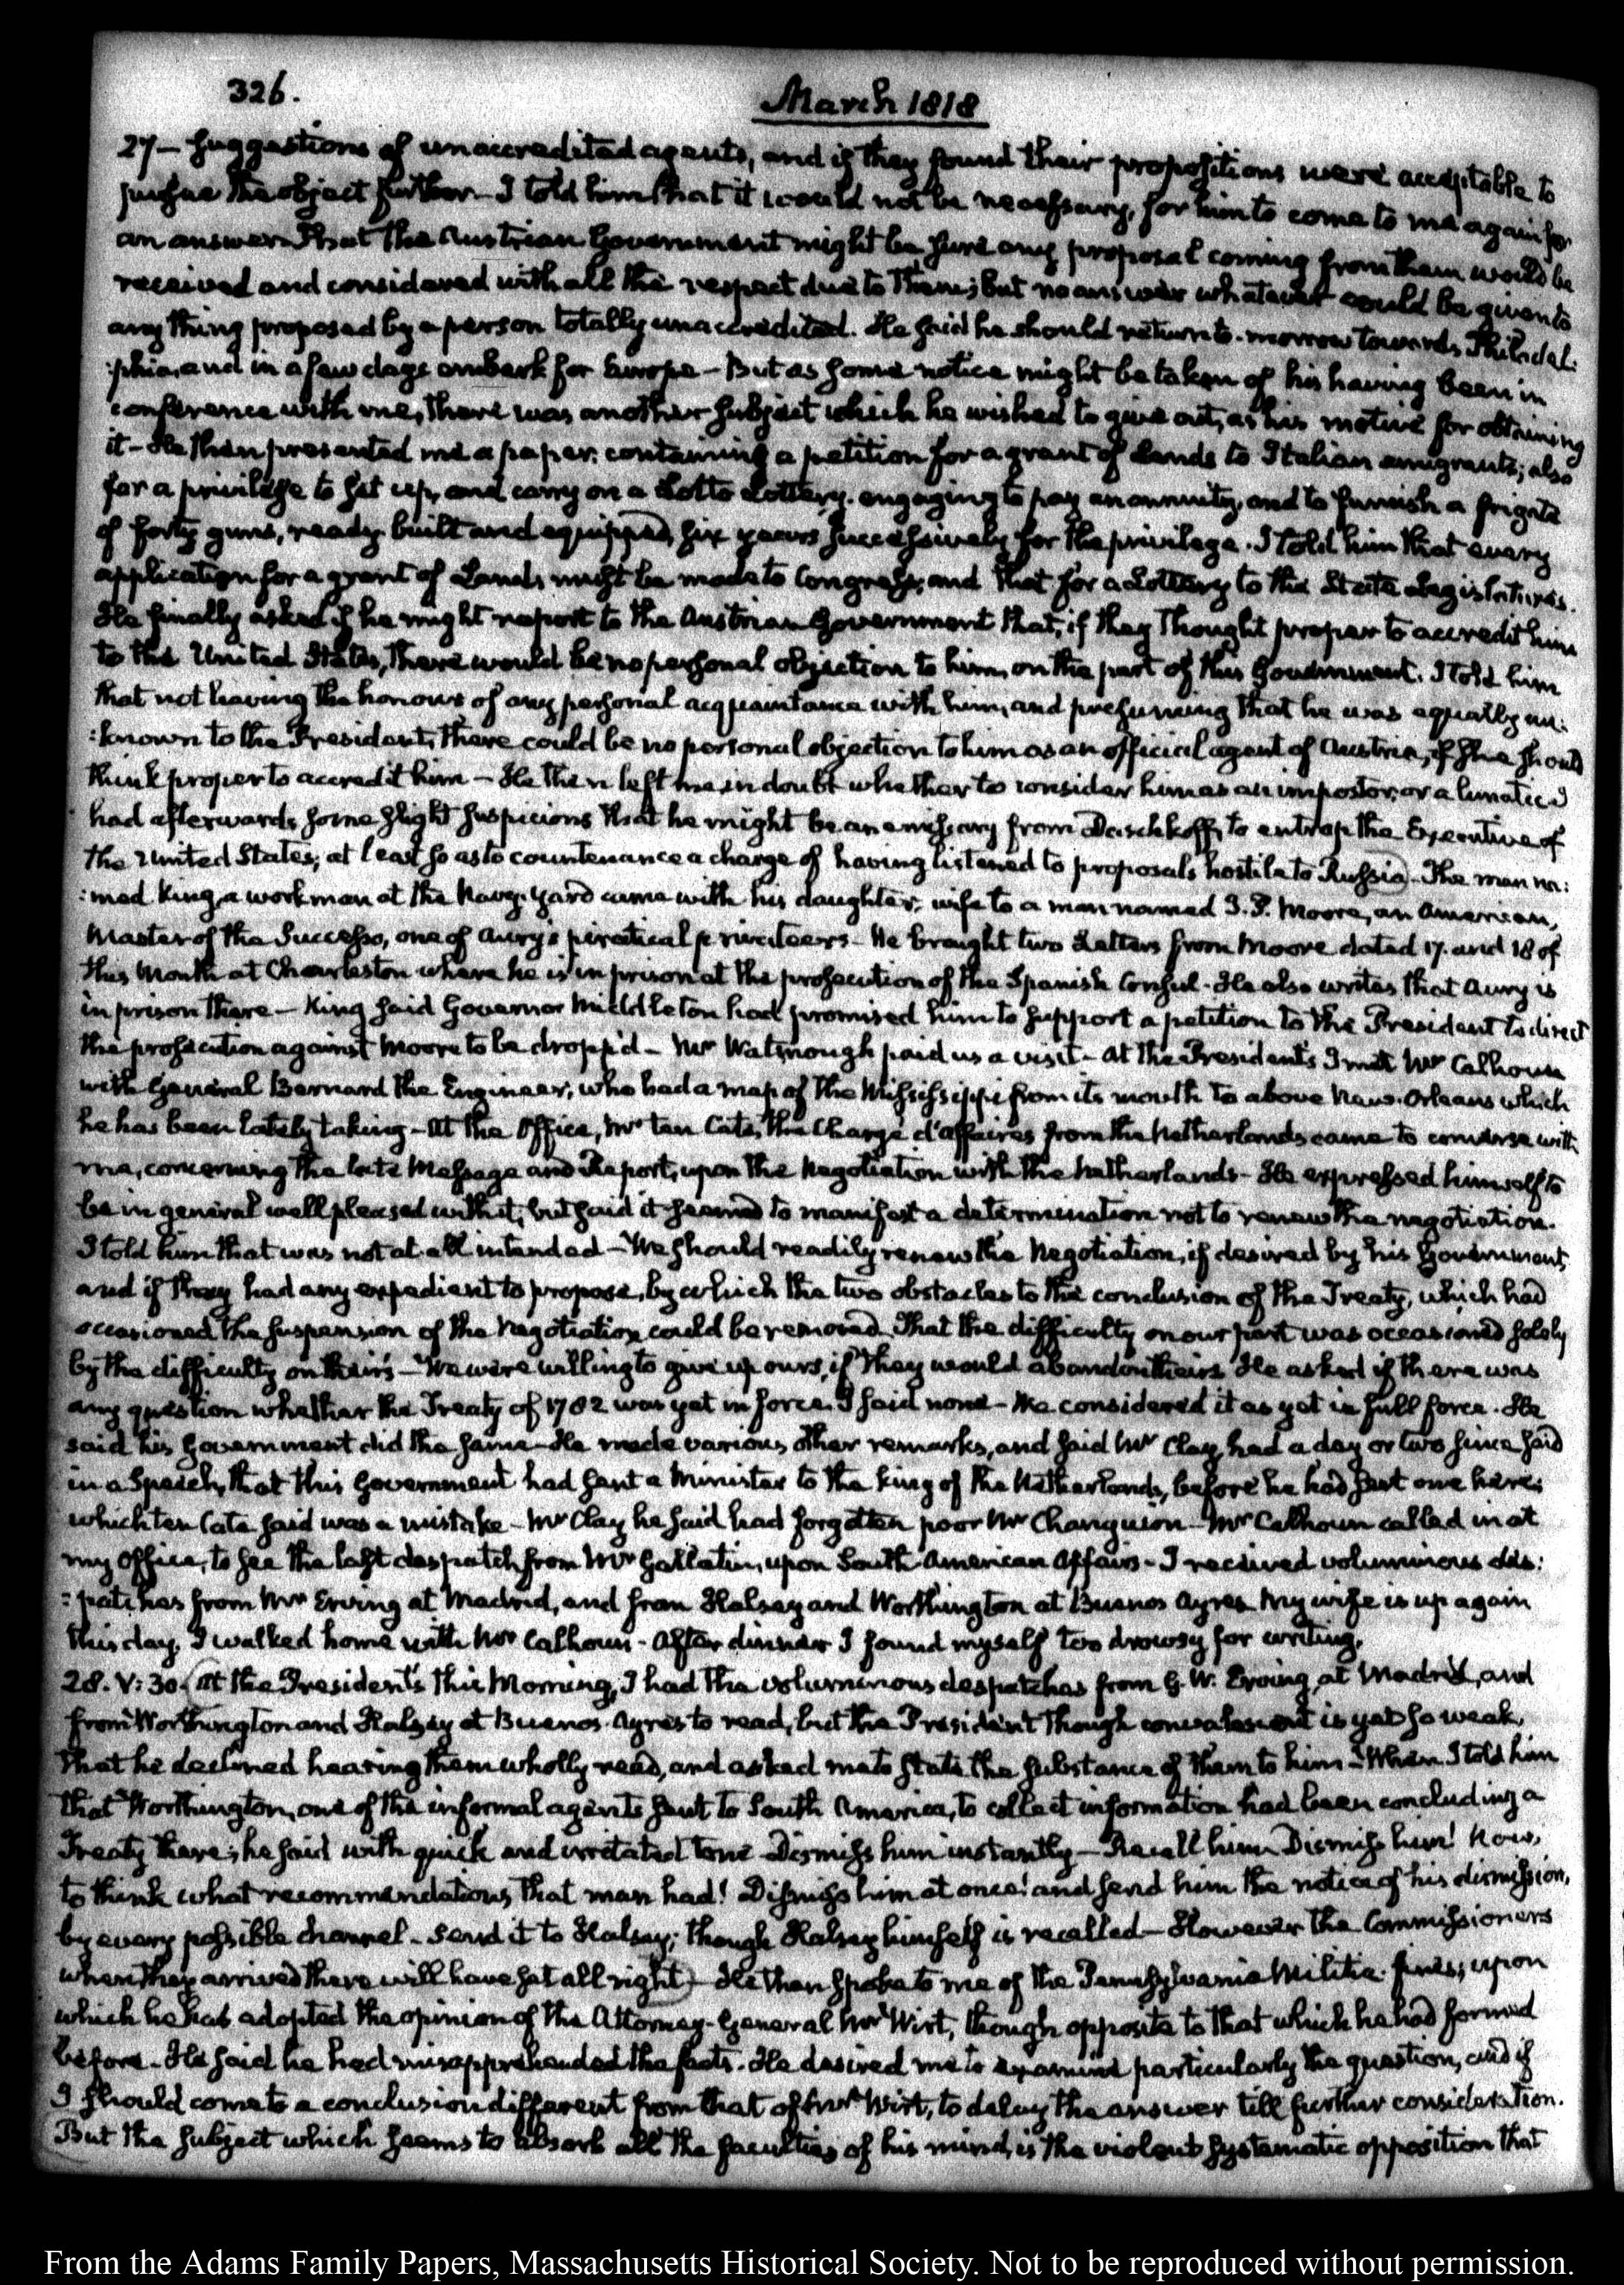 326.
March 1818
27 — Suggestions of unaccredited agents, and if they found their propositions were acceptable to
pursue the object further — I told him that it would not be necessary, for him to come to me again for
an answer. That the Austrian Government might be sure any proposal coming from them would be
received and considered with all the respect due to them; but no answer whatever could be given to
any thing proposed by a person totally unaccredited. He said he should return to-morrow towards Philadel:
:phia, and in a few days embark for Europe — But as some notice might be taken of his having been in
conference with me, there was another subject which he wished to give out, as his motive for obtaining
it — He then presented me a paper, containing a petition for a grant of Lands to Italian emigrants; also
for a privilege to set up, and carry on a Lotto Lottery, engaging to pay an annuity, and to furnish a frigate
of forty guns, ready built and equipped, six years successively for the privilege. I told him that every
application for a grant of Lands must be made to Congress, and that for a Lottery to the State Legislatures.
He finally asked if he might report to the Austrian Government that, if they thought proper to accredit him
to the United States, there would be no personal objection to him, on the part of this Government. I told him
that not having the honour of any personal acquaintance with him, and presuming that he was equally un:
:known to the President, there could be no personal objection to him as an official agent of Austria, if she should
think proper to accredit him — He then left me in doubt whether to consider him as an impostor, or a lunatic. I
had afterwards some slight suspicions that he might be an emissary from Daschkoff, to entrap the Executive of
the United States; at least so as to countenance a charge of having listened to proposals hostile to Russia. The man na:
:med King, a workman at the Navy-Yard came with his daughter, wife to a man named J. P. Moore, an American,
Master of the Successo, one of Aury's piratical privateers — He brought two Letters from Moore dated 17. and 18 of
this Month at Charleston where he is in prison at the prosecution of the Spanish Consul. He also writes that Aury is
in prison there — King said Governor Middleton had promised him to support a petition to the President to direct
the prosecution against Moore to be dropp'd — Mr Watmough paid us a visit — At the President's I met Mr Calhoun
with General Bernard the Engineer, who had a map of the Mississippi from its mouth to above New-Orleans which
he has been lately taking — At the Office, Mr ten Cate, the Chargé d'affaires from the Netherlands came to converse with
me, concerning the late Message and Report, upon the Negotiation with the Netherlands — He expressed himself to
be in general well pleased with it, but said it seemed to manifest a determination not to renew the negotiation.
I told him that was not at all intended — We should readily renew the Negotiation, if desired by his Government,
and if they had any expedient to propose, by which the two obstacles to the conclusion of the Treaty, which had
occasioned the suspension of the negotiation could be removed. That the difficulty on our part was occasioned solely
by the difficulty on theirs — We were willing to give up ours, if they would abandon theirs. He asked if there was
any question whether the Treaty of 1782 was yet in force. I said none — We considered it as yet in full force. He
said his Government did the same — He made various other remarks, and said Mr Clay, had a day or two since said
in a Speech, that this Government had sent a Minister to the king of the Netherlands, before he had sent one here;
which ten Cate said was a mistake — Mr Clay he said had forgotten poor Mr Changuion — Mr Calhoun called in at
my Office, to see the last despatch from Mr Gallatin, upon South-American Affairs — I received voluminous des:
:patches from Mr Erving at Madrid, and from Halsey and Worthington at Buenos Ayres. My wife is up again
this day. I walked home with Mr Calhoun — After dinner I found myself too drowsy for writing.
28. V:30. At the President's this Morning, I had the voluminous despatches from G. W. Erving, at Madrid, and
from Worthington and Halsey at Buenos-Ayres to read, but the President though convalescent is yet so weak,
that he declined hearing them wholly read, and asked me to state the substance of them to him — When I told him
that Worthington, one of the informal agents sent to South America, to collect information had been concluding a
Treaty there; he said with quick and irritated tone — Dismiss him instantly — Recall him — Dismiss him! Now,
to think what recommendations that man had! Dismiss him at once! and send him the notice of his dismission,
by every possible channel — Send it to Halsey; though Halsey himself is recalled — However the Commissioners
when they arrived there will have set all right — He then spoke to me of the Pennsylvania Militia fines; upon
which he has adopted the opinion of the Attorney-General Mr Wirt, though opposite to that which he had formed
before — He said he had misapprehended the facts. He desired me to examine particularly the question, and if
I should come to a conclusion different from that of Mr Wirt, to delay the answer till further consideration.
But the subject which seems to absorb all the faculties of his mind, is the violent systematic opposition that
From the Adams Family Papers, Massachusetts Historical Society. Not to be reproduced without permission.